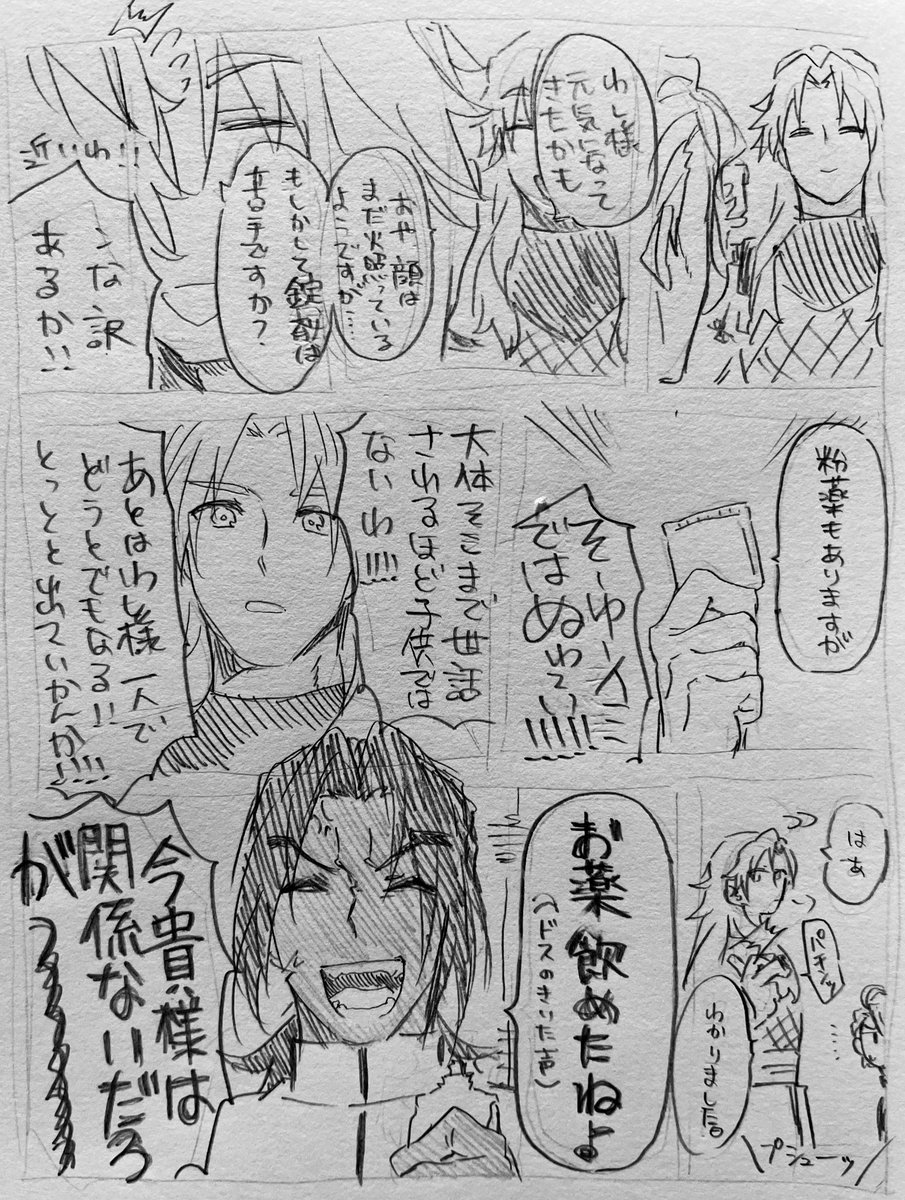 わし様
元気になって
きたかも
おや 顔は
まだ火照っている
ようですが…
もしかして錠剤は
ある手ですか?
近いわ!!
ンな訳
あるか!!
粉薬もありますが
そーゆーイミ
ではぬわぃ!!!!!
大体そこまで世話
されるほど子供では
ないわ!!!!
あとはわし様一人で
どうとでもなる!!
とっとと出ていかんか!!!!
はぁ
パキンッ
……
わかりました。
プシューッ
お薬飲めたねよ
(ドスのきいた声)
今貴様は
関係ないだろ
がっ